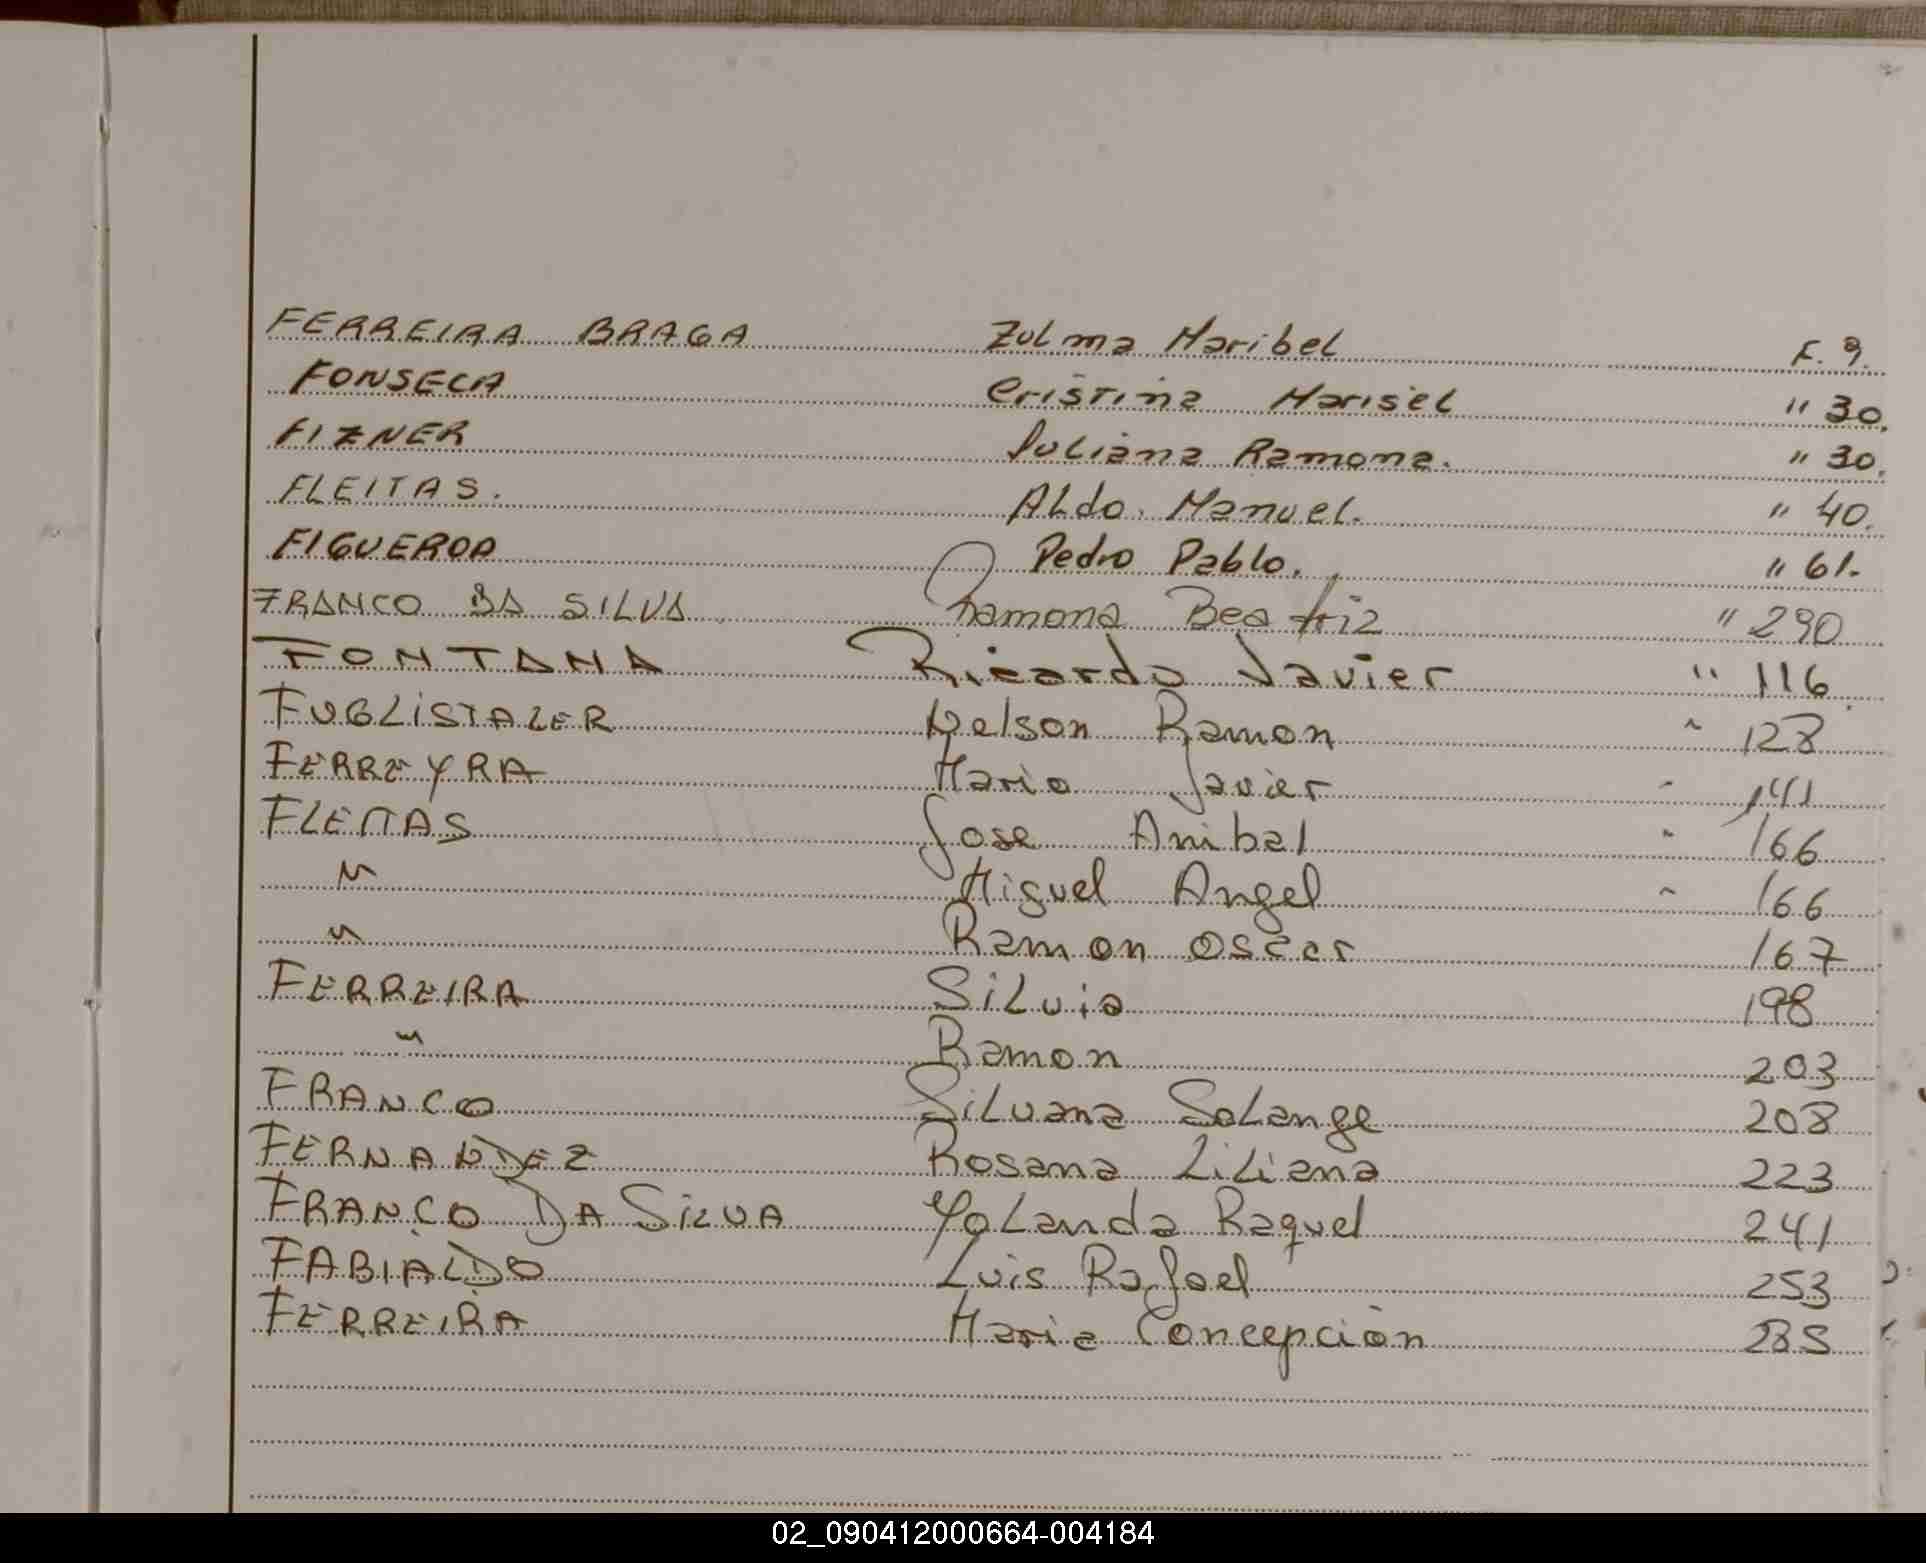 FERREIRA BRAGA Zulma Maribel F. 9.
FONSECA Cristina Marisel " 30.
FIZNER Juliana Ramona. " 30.
FLEITAS. Aldo. Manuel. " 40.
FIGUEROA Pedro Pablo. " 61.
FRANCO DA SILVA Ramona Beatriz " 290
FONTANA Ricardo Javier " 116
FUGLISTALER Nelson Ramon " 128
FERREYRA Mario Javier " 141
FLEITAS Jose Anibal " 166
" Miguel Angel " 166
" Ramon Oscar 167
FERREIRA Silvia 198
" Ramon 203
FRANCO Silvana Solange 208
FERNANDEZ Rosana Liliana 223
FRANCO DA SILVA Yolanda Raquel 241
FABIALDO Luis Rafael 253
FERREIRA Maria Concepción
02_090412000664-004184